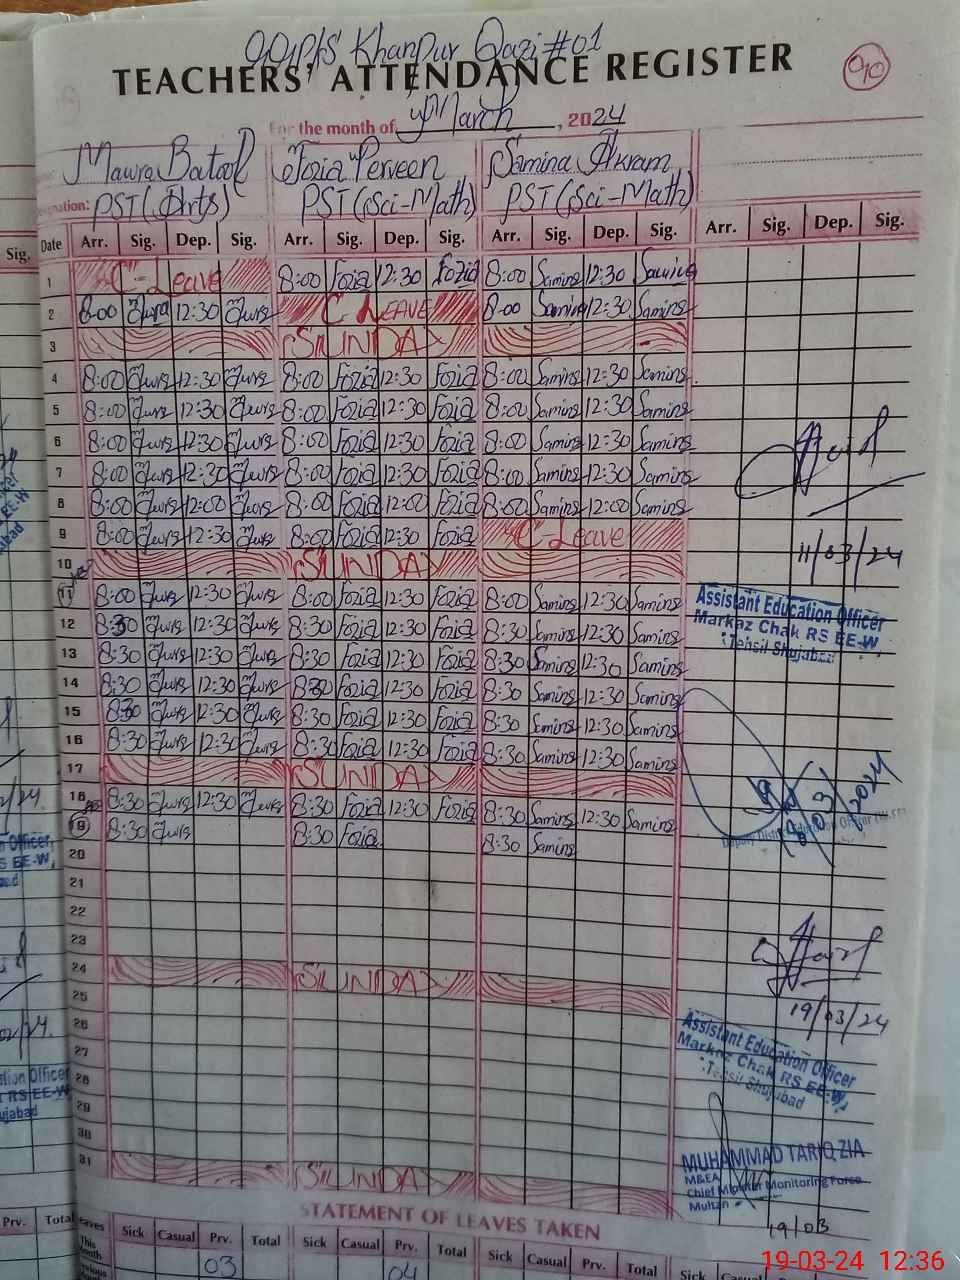 GGIP/S Khanpur Qazi #01
TEACHERS' ATTENDANCE REGISTER
For the month of March, 2024
Mawra Batool Fozia Perveen Samina Akram
PST (Arts) PST (Sci-Math) PST (Sci-Math)
Date Arr. Sig. Dep. Sig. Arr. Sig. Dep. Sig. Arr. Sig. Dep. Sig. Arr. Sig. Dep. Sig.
1 C-Leave 8:00 Fozia 12:30 Fozia 8:00 Samina 12:30 Samina
2 8:00 12:30 C LEAVE 8:00 Samina 12:30 Samina
3 SUNDAY
4 8:00 12:30 8:00 Fozia 12:30 Fozia 8:00 Samina 12:30 Samina
5 8:00 12:30 8:00 Fozia 12:30 Fozia 8:00 Samina 12:30 Samina
6 8:00 12:30 8:00 Fozia 12:30 Fozia 8:00 Samina 12:30 Samina
7 8:00 12:30 8:00 Fozia 12:30 Fozia 8:00 Samina 12:30 Samina
8 8:00 12:00 8:00 Fozia 12:00 Fozia 8:00 Samina 12:00 Samina
9 8:00 12:30 8:00 Fozia 12:30 Fozia C-Leave
11/03/24
10 SUNDAY
11 8:00 12:30 8:00 Fozia 12:30 Fozia 8:00 Samina 12:30 Samina
Assistant Education Officer
Markaz Chak RS EE-W
Tehsil Shujabad
12 8:30 12:30 8:30 Fozia 12:30 Fozia 8:30 Samina 12:30 Samina
13 8:30 12:30 8:30 Fozia 12:30 Fozia 8:30 Samina 12:30 Samina
14 8:30 12:30 8:30 Fozia 12:30 Fozia 8:30 Samina 12:30 Samina
15 8:30 12:30 8:30 Fozia 12:30 Fozia 8:30 Samina 12:30 Samina
16 8:30 12:30 8:30 Fozia 12:30 Fozia 8:30 Samina 12:30 Samina
17 SUNDAY
18 8:30 12:30 8:30 Fozia 12:30 Fozia 8:30 Samina 12:30 Samina
19 8:30 8:30 Fozia 8:30 Samina
20
21
22
23
24 SUNDAY
25
19/03/24
26
Assistant Education Officer
Markaz Chak RS EE-W
Tehsil Shujabad
27
28
29
30
31 SUNDAY
MUHAMMAD TARIQ ZIA
M&EA
Chief Minister Monitoring Force
Multan
19/03
STATEMENT OF LEAVES TAKEN
Sick Casual Prv. Total Sick Casual Prv. Total Sick Casual Prv. Total Sick Casual
03 04
19-03-24 12:36